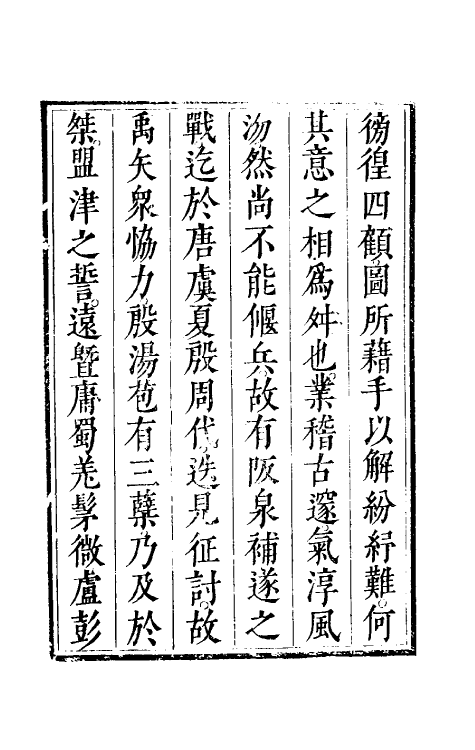 徬徨四顧。圖所藉手以解紛紓難。何
其意之相爲舛也。業稽古邃。氣淳風
沕。然尚不能偃兵。故有阪泉補遂之
戰。迄於唐虞夏殷周。代迭見征討。故
禹矢衆恊力。殷湯苞有三蘖。乃及於
桀。盟津之誓。遠暨庸蜀羌髳微盧彭